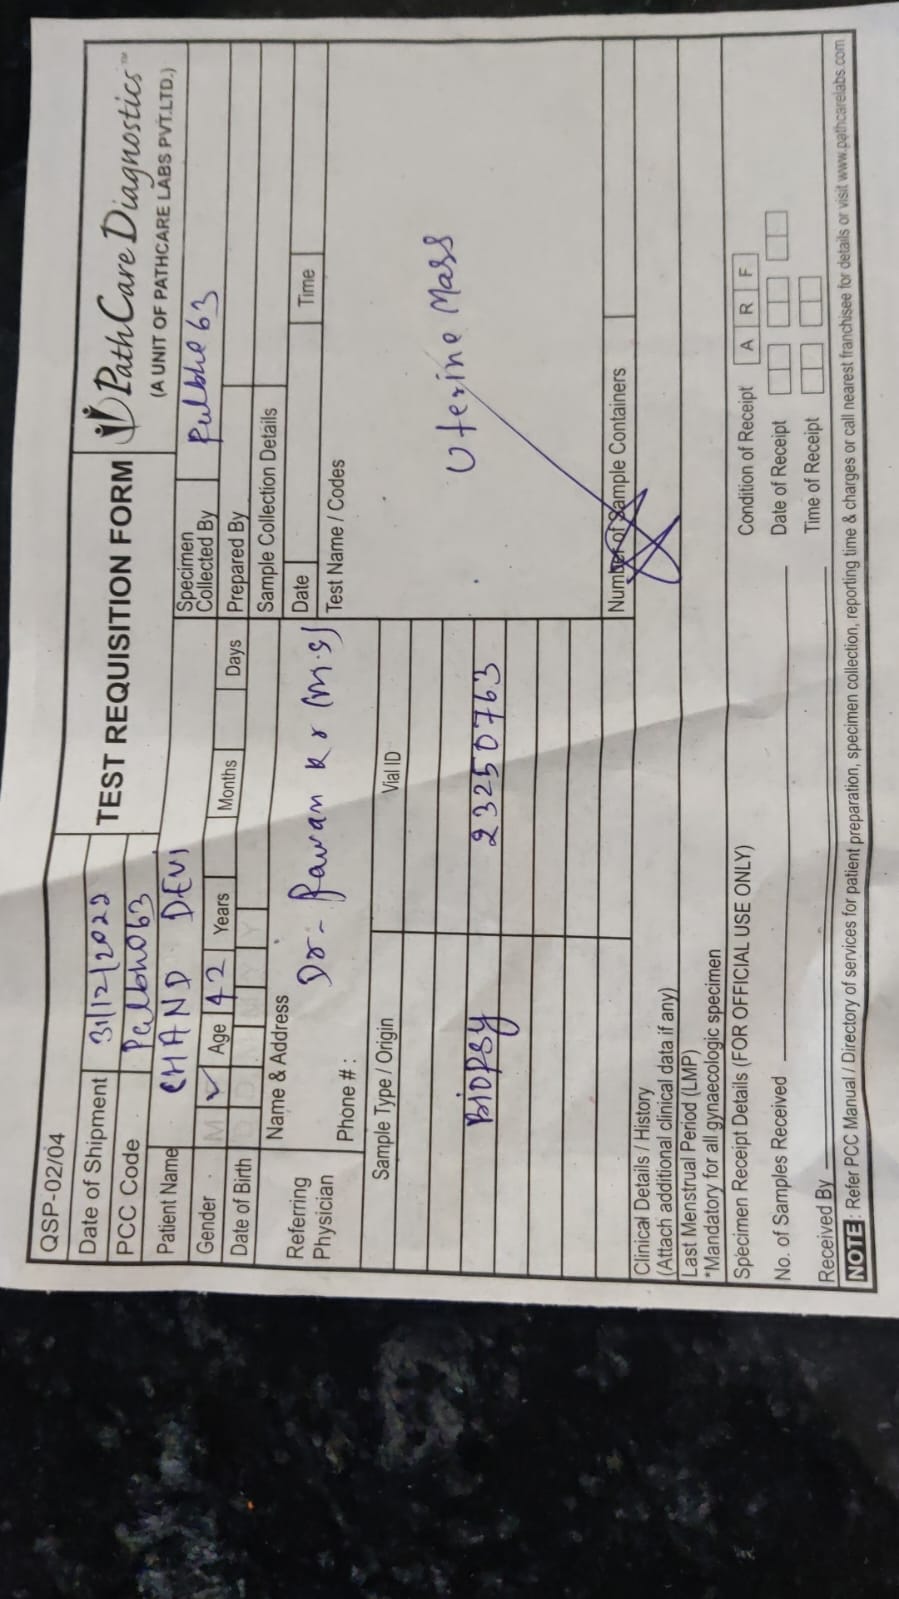 QSP-02/04
Date of Shipment 31/12/2022
PCC Code Pulbh063
TEST REQUISITION FORM
PathCare Diagnostics™
(A UNIT OF PATHCARE LABS PVT.LTD.)
Patient Name CHAND DEVI
Gender M ✓ Age 42 Years Months Days
Date of Birth D D M M Y Y
Specimen Collected By Pulbh063
Prepared By
Sample Collection Details
Date Time
Referring Physician
Name & Address
Dr- Pawan Kr (M.S)
Phone # :
Test Name / Codes
Uterine Mass
Sample Type / Origin Vial ID
BIOPSY 23250763
Number of Sample Containers
Clinical Details / History
(Attach additional clinical data if any)
Last Menstrual Period (LMP)
*Mandatory for all gynaecologic specimen
Specimen Receipt Details (FOR OFFICIAL USE ONLY)
Condition of Receipt A R F
No. of Samples Received
Date of Receipt
Received By
Time of Receipt
NOTE: Refer PCC Manual / Directory of services for patient preparation, specimen collection, reporting time & charges or call nearest franchisee for details or visit www.pathcarelabs.com